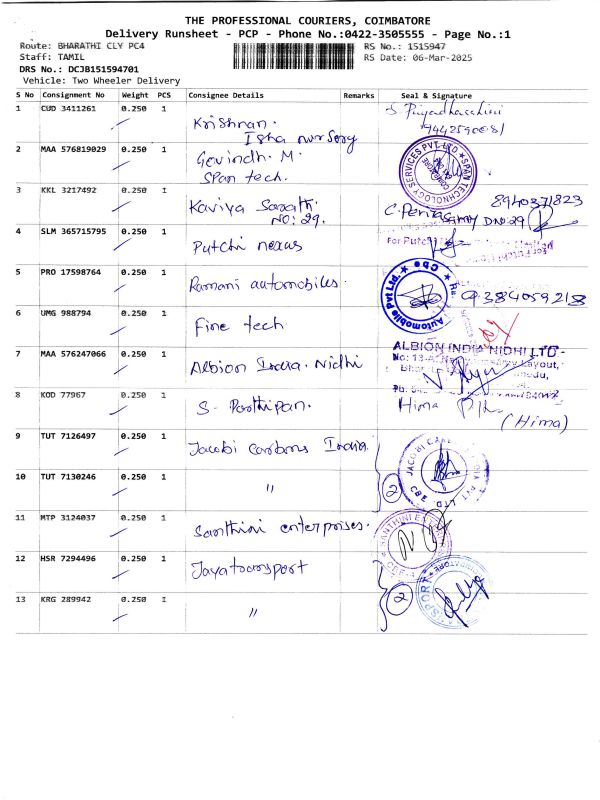 THE PROFESSIONAL COURIERS, COIMBATORE
Delivery Runsheet - PCP - Phone No.:0422-3505555 - Page No.:1
Route: BHARATHI CLY PC4
RS No.: 1515947
Staff: TAMIL
RS Date: 06-Mar-2025
DRS No.: DCJB151594701
Vehicle: Two Wheeler Delivery
S No Consignment No Weight PCS Consignee Details Remarks Seal & Signature
1 CUD 3411261 0.250 1 Krishnan. S. Priyadharshini
Isha nursery 9442590081
2 MAA 576819029 0.250 1 Govindh. M.
Span tech. SPAN TECHNOLOGY SERVICES PVT LTD COIMBATORE
3 KKL 3217492 0.250 1 Kaviya Sarath. 8940371823
NO: 29. C. Periasamy D.NO 29
4 SLM 365715795 0.250 1 Putchi nexas For Putchi
5 PRO 17598764 0.250 1 Ramani automobiles. Automobile Pvt Ltd. Cbe 9384059218
6 UMG 988794 0.250 1 Fine tech
7 MAA 576247066 0.250 1 Albion India. Nidhi ALBION INDIA NIDHI LTD
8 KOD 77967 0.250 1 S. Parthipan. Hima
(Hima)
9 TUT 7126497 0.250 1 Jacobi Carbons India JACOBI CAR PVT LTD CBE
10 TUT 7130246 0.250 1 " 2
11 MTP 3124037 0.250 1 Santhini enterprises. SANTHINI
12 HSR 7294496 0.250 1 Jayatransport
13 KRG 289942 0.250 1 " 2